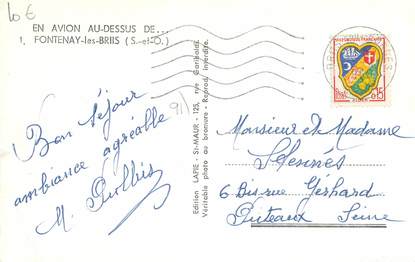 10 €
EN AVION AU-DESSUS DE...
1. FONTENAY-les-BRIIS (S.-et-O.)
Bon séjour
ambiance agréable
M.
Edition LAPIE - St-MAUR - 125, rue Garibaldi
Véritable photo au bromure - Reprod. Interdite.
Monsieur et Madame
6 Bis rue Géshard
Puteaux Seine
REPUBLIQUE FRANÇAISE
0,15
ALGER